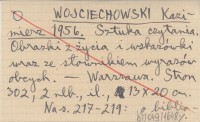 WOJCIECHOWSKI Kazi-
mierz 1956. Sztuka czytania.
Obrazki z życia i wskazówki
wraz ze słownikiem wyrazów
obcych. — Warszawa. Stron
302, 2 nlb, il., 13 x 20 cm.
Na s. 217-219: